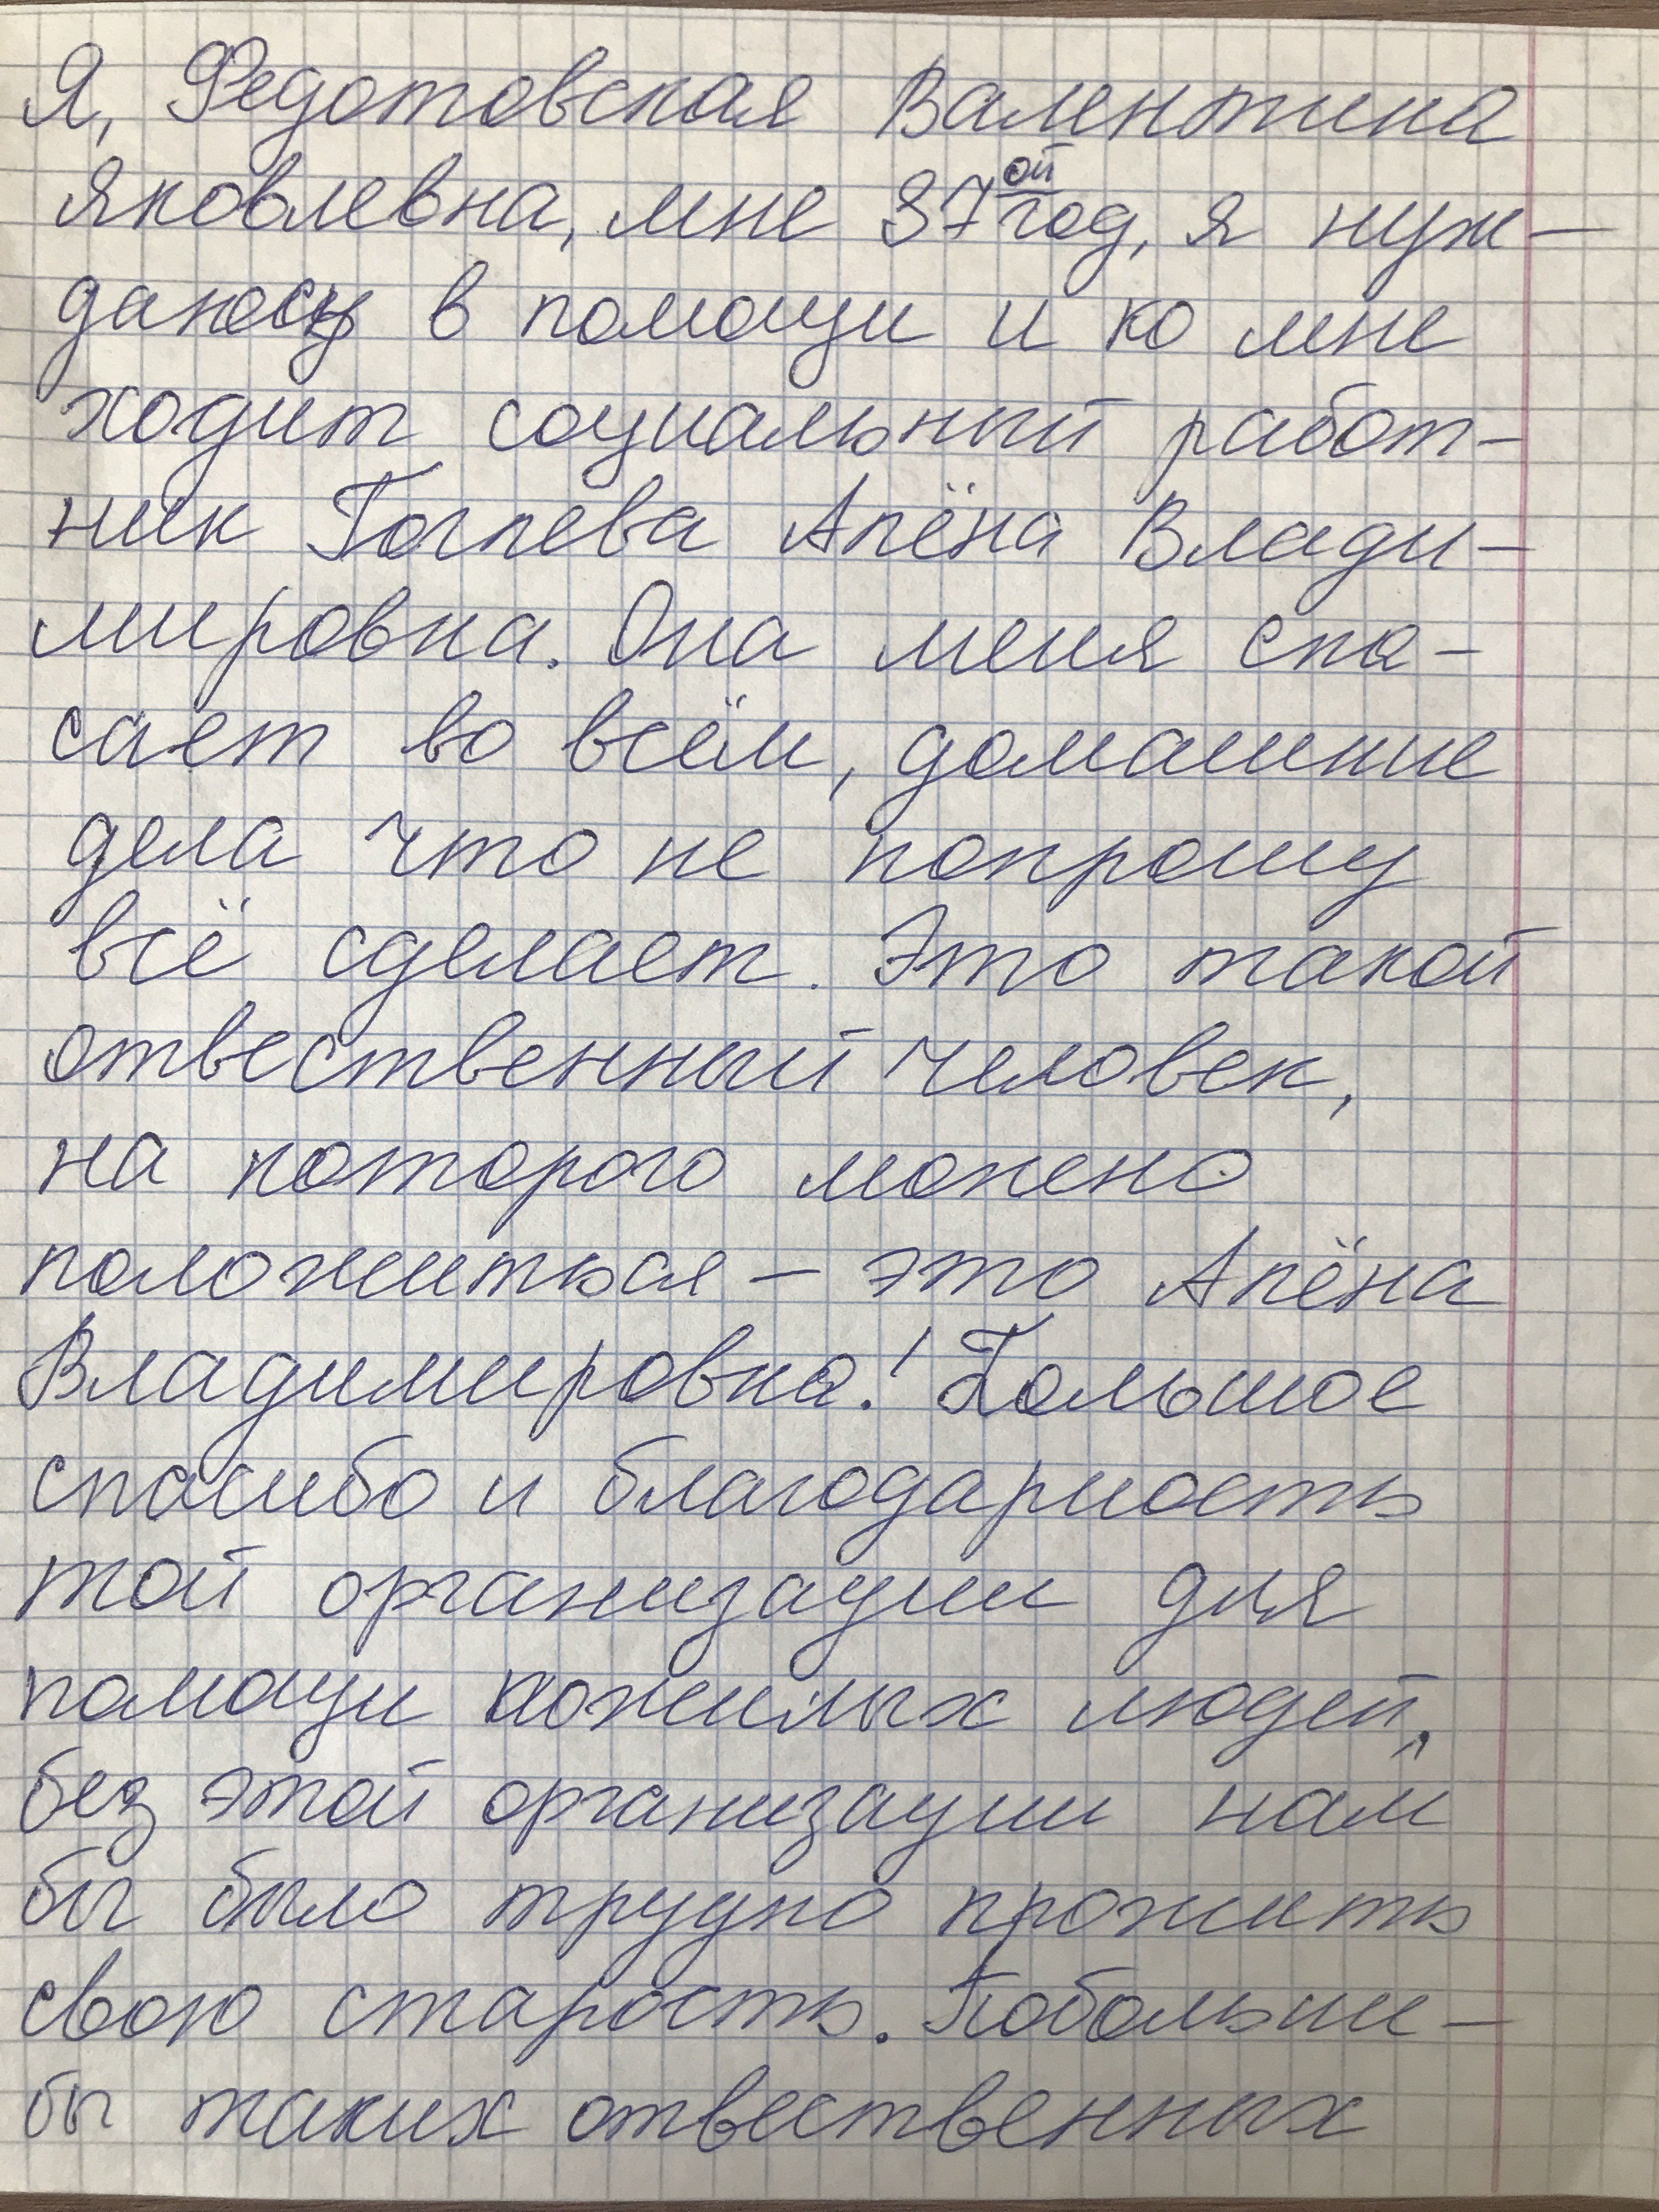 Я, Федотовская Валентина
Яковлевна, мне 87ой год, я нуж-
даюсь в помощи и ко мне
ходит социальный работ-
ник Гоглева Алёна Влади-
мировна. Она меня спа-
сает во всём, домашние
дела что не попрошу
всё сделает. Это такой
отвественный человек,
на которого можно
положиться – это Алёна
Владимировна! Большое
спасибо и благодарность
той организации для
помощи пожилых людей,
без этой организации нам
бы было трудно прожить
свою старость. Побольше-
бы таких отвественных